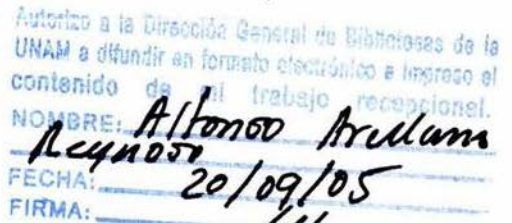 Autorizo a la Dirección General de Bibliotecas de la
UNAM a difundir en formato electrónico e impreso el
contenido de mi trabajo recepcional.
NOMBRE: Alfonso Arellano
Reynoso
FECHA: 20/09/05
FIRMA: